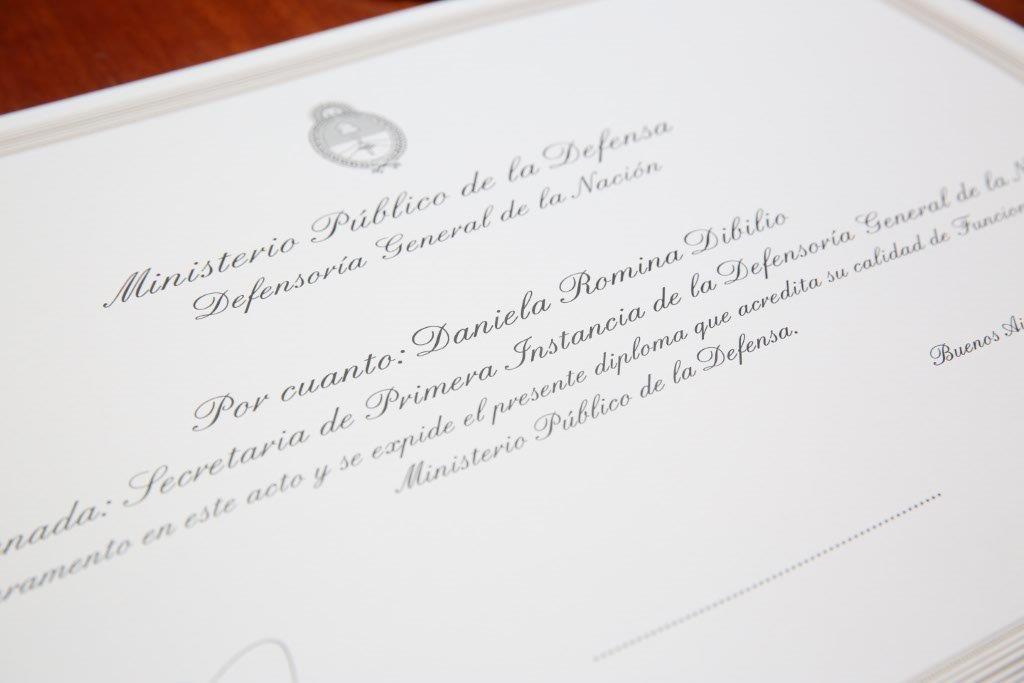 Ministerio Público de la Defensa
Defensoría General de la Nación
Por cuanto: Daniela Romina Dibilio
Secretaria de Primera Instancia de la Defensoría General de la
en este acto y se expide el presente diploma que acredita su calidad de
Ministerio Público de la Defensa.
Buenos